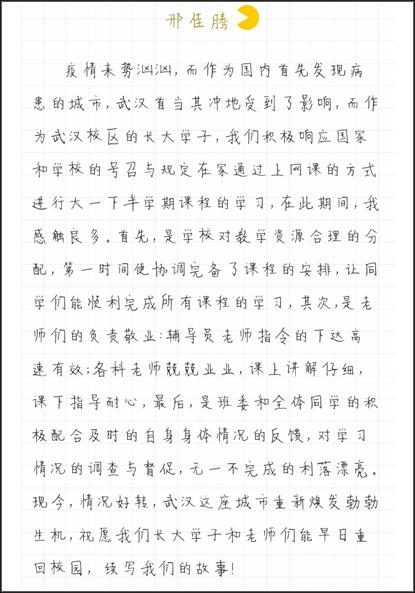 邢佳腾
疫情来势汹汹，而作为国内首先发现病
患的城市，武汉首当其冲地受到了影响，而作
为武汉校区的长大学子，我们积极响应国家
和学校的号召与规定在家通过上网课的方式
进行大一下半学期课程的学习，在此期间，我
感触良多。首先，是学校对教学资源合理的分
配，第一时间便协调完备了课程的安排，让同
学们能顺利完成所有课程的学习，其次，是老
师们的负责敬业：辅导员老师指令的下达高
速有效；各科老师兢兢业业，课上讲解仔细，
课下指导耐心，最后，是班委和全体同学的积
极配合及时的自身身体情况的反馈，对学习
情况的调查与督促，无一不完成的利落漂亮。
现今，情况好转，武汉这座城市重新焕发勃勃
生机，祝愿我们长大学子和老师们能早日重
回校园，续写我们的故事！